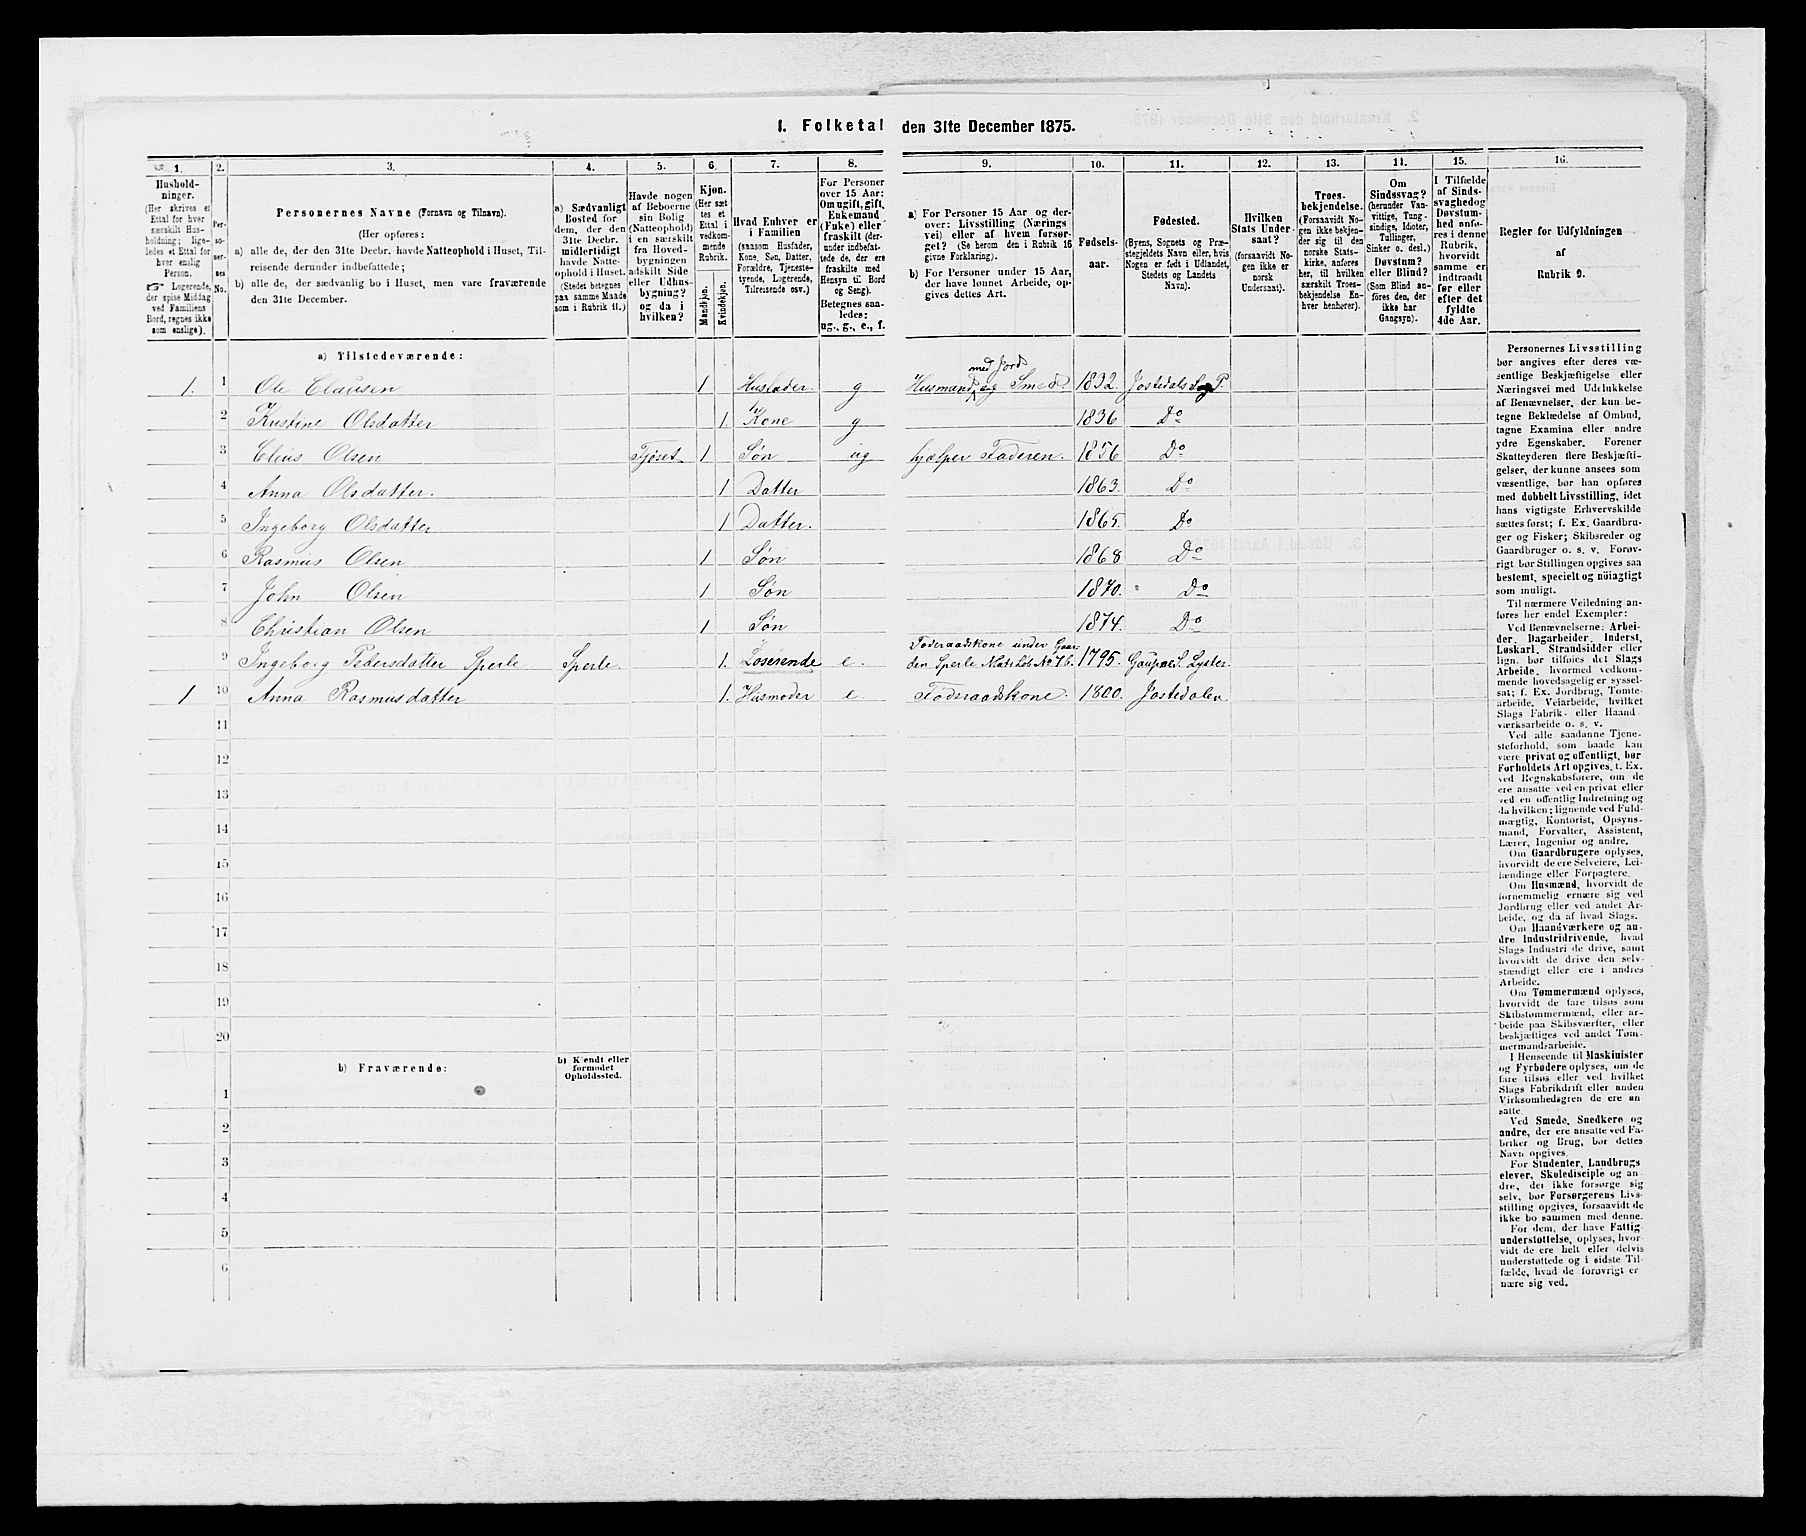 1. Folketal den 31te December 1875.
1. 2. 3. 4. 5. 6. 7. 8. 9. 10. 11. 12. 13. 14. 15. 16.
Hushold-
ninger.
(Her skrives et
Ettal for hver
særskilt Hus-
holdning; lige-
ledes et Ettal for
hver enslig
Person.
☞ Logerende,
der spise Middag
ved Familiens
Bord, regnes ikke
som enslige).
Per-
so-
ner-
nes
No.
Personernes Navne (Fornavn og Tilnavn).
(Her opføres:
a) alle de, der den 31te Decbr. havde Natteophold i Huset, Til-
reisende derunder indbefattede;
b) alle de, der sædvanlig bo i Huset, men vare fraværende
den 31te December.
a) Sædvanligt
Bosted for
dem, der den
31te Decbr.
midlertidigt
havde Natte-
ophold i Huset.
(Stedet betegnes
paa samme Maade
som i Rubrik 11.)
Havde nogen
af Beboerne
sin Bolig
(Natteophold)
i en særskilt
fra Hoved-
bygningen
adskilt Side
eller Udhus-
bygning?
og da i
hvilken?
Kjøn.
(Her sæt-
tes et
Ettal i
vedkom-
mende
Rubrik.
Mandkjøn.
Kvindekjøn.
Hvad Enhver er
i Familien
(saasom Husfader,
Kone, Søn, Datter,
Forældre, Tjeneste-
tyende, Logerende,
Tilreisende osv.)
For Personer
over 15 Aar:
Om ugift, gift,
Enkemand
(Enke) eller
fraskilt (der-
under indbefat-
tede de, der ere
fraskilte med
Hensyn til Bord
og Seng).
Betegnes saa-
ledes:
ug., g., e., f.
a) For Personer 15 Aar og der-
over: Livsstilling (Nærings-
vei) eller af hvem forsør-
get? (Se herom den i Rubrik 16
givne Forklaring).
b) For Personer under 15 Aar,
der have lønnet Arbeide, op-
gives dettes Art.
Fødsels-
aar.
Fødested.
(Byens, Sognets og Præ-
stegjeldets Navn eller, hvis
Nogen er født i Udlandet,
Stedets og Landets
Navn).
Hvilken
Stats Under-
saat?
(forsaavidt No-
gen ikke er
norsk
Undersaat).
Troes-
bekjendelse.
(Forsaavidt No-
gen ikke bekjen-
der sig til den
norske Stats-
kirke, anføres
her, til hvilken
særskilt Troes-
bekjendelse En-
hver henhører).
Om
Sindssvag?
(herunder Van-
vittige, Tung-
sindige, Idioter,
Tullinger,
Sinker o. desl.)
Døvstum?
eller Blind?
(Som Blind an-
føres den, der
ikke har
Gangsyn).
I Tilfælde
af Sinds-
svaghed og
Døvstum-
hed anfø-
res i denne
Rubrik,
hvorvidt
samme er
indtraadt
før eller
efter det
fyldte
4de Aar.
Regler for Udfyldningen
af
Rubrik 9.
a) Tilstedeværende:
med Jord
1. 1 Ole Clausen 1 Husfader. g Husmand og Smed. 1832. Jostedals P.
2 Kristine Olsdatter 1. Kone g 1836 Do
3 Claus Olsen Fjøset 1 Søn ug hjælper Faderen. 1856 Do
4 Anna Olsdatter. 1 Datter 1863. Do
5 Ingeborg Olsdatter 1 Datter. 1865. Do
6 Rasmus Olsen 1 Søn 1868 Do
7 John Olsen 1 Søn 1870. Do
8 Christian Olsen 1 Søn 1874. Do
Foderaadskone under Gaar-
9 Ingeborg Pedersdatter Sperle Sperle. 1. Loserende e. den Sperle Matr. Løb No 76. 1795. Gaupne S. Lyster
1 10 Anna Rasmusdatter 1. Husmoder e. Foderaadskone. 1800. Jostedalen
11
12
13
14
15
16
17
18
19
20
b) Fraværende:
b) Kjendt eller
formodet
Opholdssted.
1
2
3
4
5
6
Personernes Livsstilling
bør angives efter deres væ-
sentlige Beskjæftigelse eller
Næringsvei med Udelukkelse
af Benævnelser, der kun be-
tegne Beklædelse af Ombud,
tagne Examina eller andre
ydre Egenskaber. Forener
Skatteyderen flere Beskjæfti-
gelser, der kunne ansees som
væsentlige, bør han opføres
med dobbelt Livsstilling, idet
hans vigtigste Erhvervskilde
sættes først; f. Ex. Gaardbru-
ger og Fisker; Skibsreder og
Gaardbruger o. s. v. Forøv-
rigt bør Stillingen opgives saa
bestemt, specielt og nöiagtigt
som muligt.
Til nærmere Veiledning an-
føres her endel Exempler:
Ved Benævnelserne: Arbei-
der, Dagarbeider, Inderst,
Løskarl, Strandsidder eller
lign. bør tilføies det Slags
Arbeide, hvormed vedkom-
mende hovedsagelig er syssel-
sat; f. Ex. Jordbrug, Tomte-
arbeide, Veiarbeide, hvilket
Slags Fabrik- eller Haand-
værksarbeide o. s. v.
Ved alle saadanne Tjene-
steforhold, som baade kan
være privat og offentligt, bør
Forholdets Art opgives, t. Ex.
ved Regnskabsførere, om de
ere ansatte ved en privat eller
ved en offentlig Indretning og
da hvilken; lignende ved Fuld-
mægtig, Kontorist, Opsyns-
mand, Forvalter, Assistent,
Lærer, Ingeniør og andre.
Om Gaardbrugere oplyses,
hvorvidt de ere Selveiere, Lei-
lændinge eller Forpagtere.
Om Husmænd, hvorvidt de
fornemmelig ernære sig ved
Jordbrug eller ved andet Ar-
beide, og da af hvad Slags.
Om Haandværkere og an-
dre Industridrivende, hvad
Slags Industri de drive, samt
hvorvidt de drive den selv-
stændigt eller ere i andres
Arbeide.
Om Tømmermænd oplyses,
hvorvidt de fare tilsøs som
Skibstømmermænd, eller ar-
beide paa Skibsværfter, eller
beskjæftiges ved andet Tøm-
mermandsarbeide.
I Henseende til Maskinister
og Fyrbødere oplyses, om de
fare tilsøs eller ved hvilket
Slags Fabrikdrift eller anden
Virksomhedsgren de ere an-
satte.
Ved Smede, Snedkere og
andre, der ere ansatte ved Fa-
briker og Brug, bør dettes
Navn opgives.
For Studenter, Landbrugs-
elever, Skoledisciple og an-
dre, der ikke forsørge sig
selv, bør Forsørgerens Livs-
stilling opgives, forsaavidt de
ikke bo sammen med denne.
For dem, der have Fattig-
understøttelse, oplyses, hvor-
vidt de ere helt eller delvis
understøttede og i sidste Til-
fælde, hvad de forøvrigt er
nære sig ved.